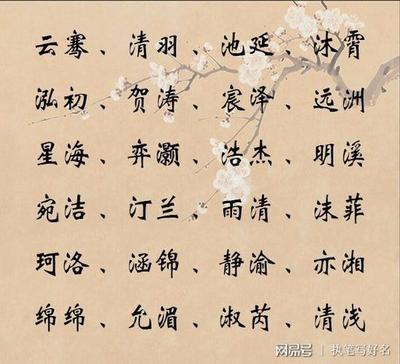 云骞、清羽、池延、沐霄
泓初、贺涛、宸泽、远洲
星海、弈灏、浩杰、明溪
宛洁、汀兰、雨清、沫菲
珂洛、涵锦、静渝、亦湘
绵绵、允湄、淑芮、清浅
网易号 | 执笔写好名